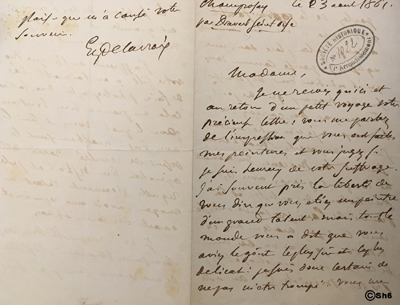 plaisir que m'a causé votre
souvenir.
Eug Delacroix
Champrosay le 23 aout 1861.
par Draveil Seine et Oise
SOCIÉTÉ HISTORIQUE
VIe Arrondissement
Madame,
Je ne reçois qu'ici et
au retour d'un petit voyage votre
précieuse lettre; vous me parlez
de l'impression que vous ont faites
mes peintures et vous jugez si
je suis heureux de votre suffrage.
J'ai souvent pris la liberté de
vous dire que vous étiez un peintre
d'un grand talent mais tout le
monde vous a dit que vous
aviez le goût le plus fin et le plus
délicat: je suis donc certain de
ne pas m'être trompé. Vous me
©Sh6